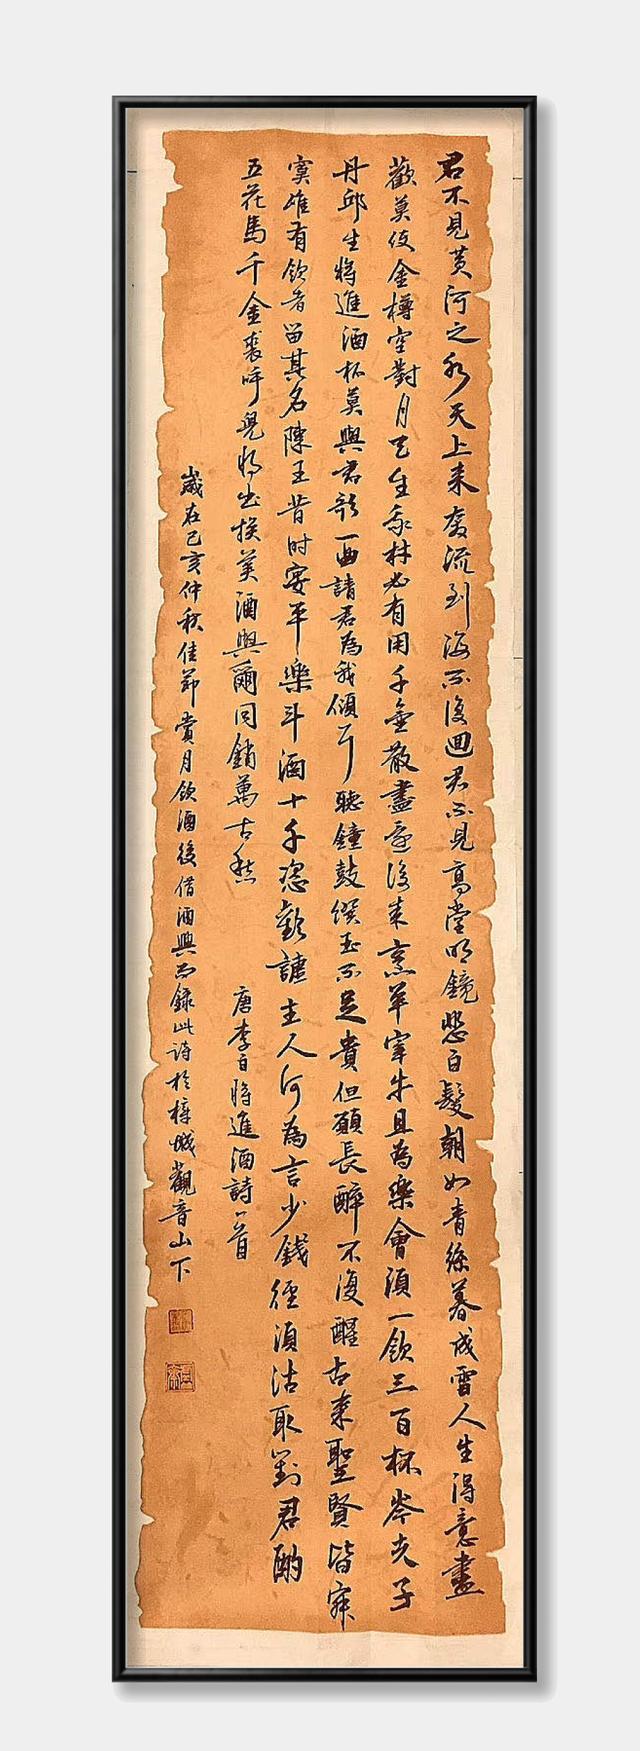 君不見黄河之水天上来奔流到海不復迴君不見高堂明鏡悲白髮朝如青絲暮成雪人生得意盡
歡莫使金樽空對月天生我材必有用千金散盡還復来烹羊宰牛且為樂會須一飲三百杯岑夫子
丹邱生將進酒杯莫與君歌一曲請君為我傾耳聽鐘鼓饌玉不足貴但願長醉不復醒古来聖賢皆寂
寞唯有飲者留其名陳王昔时宴平樂斗酒十千恣歡謔主人何為言少錢徑須沽取對君酌
五花馬千金裘呼兒將出換美酒與爾同銷萬古愁
唐李白將進酒詩一首
歲在己亥仲秋佳節賞月飲酒後借酒興而錄此詩於樟城觀音山下